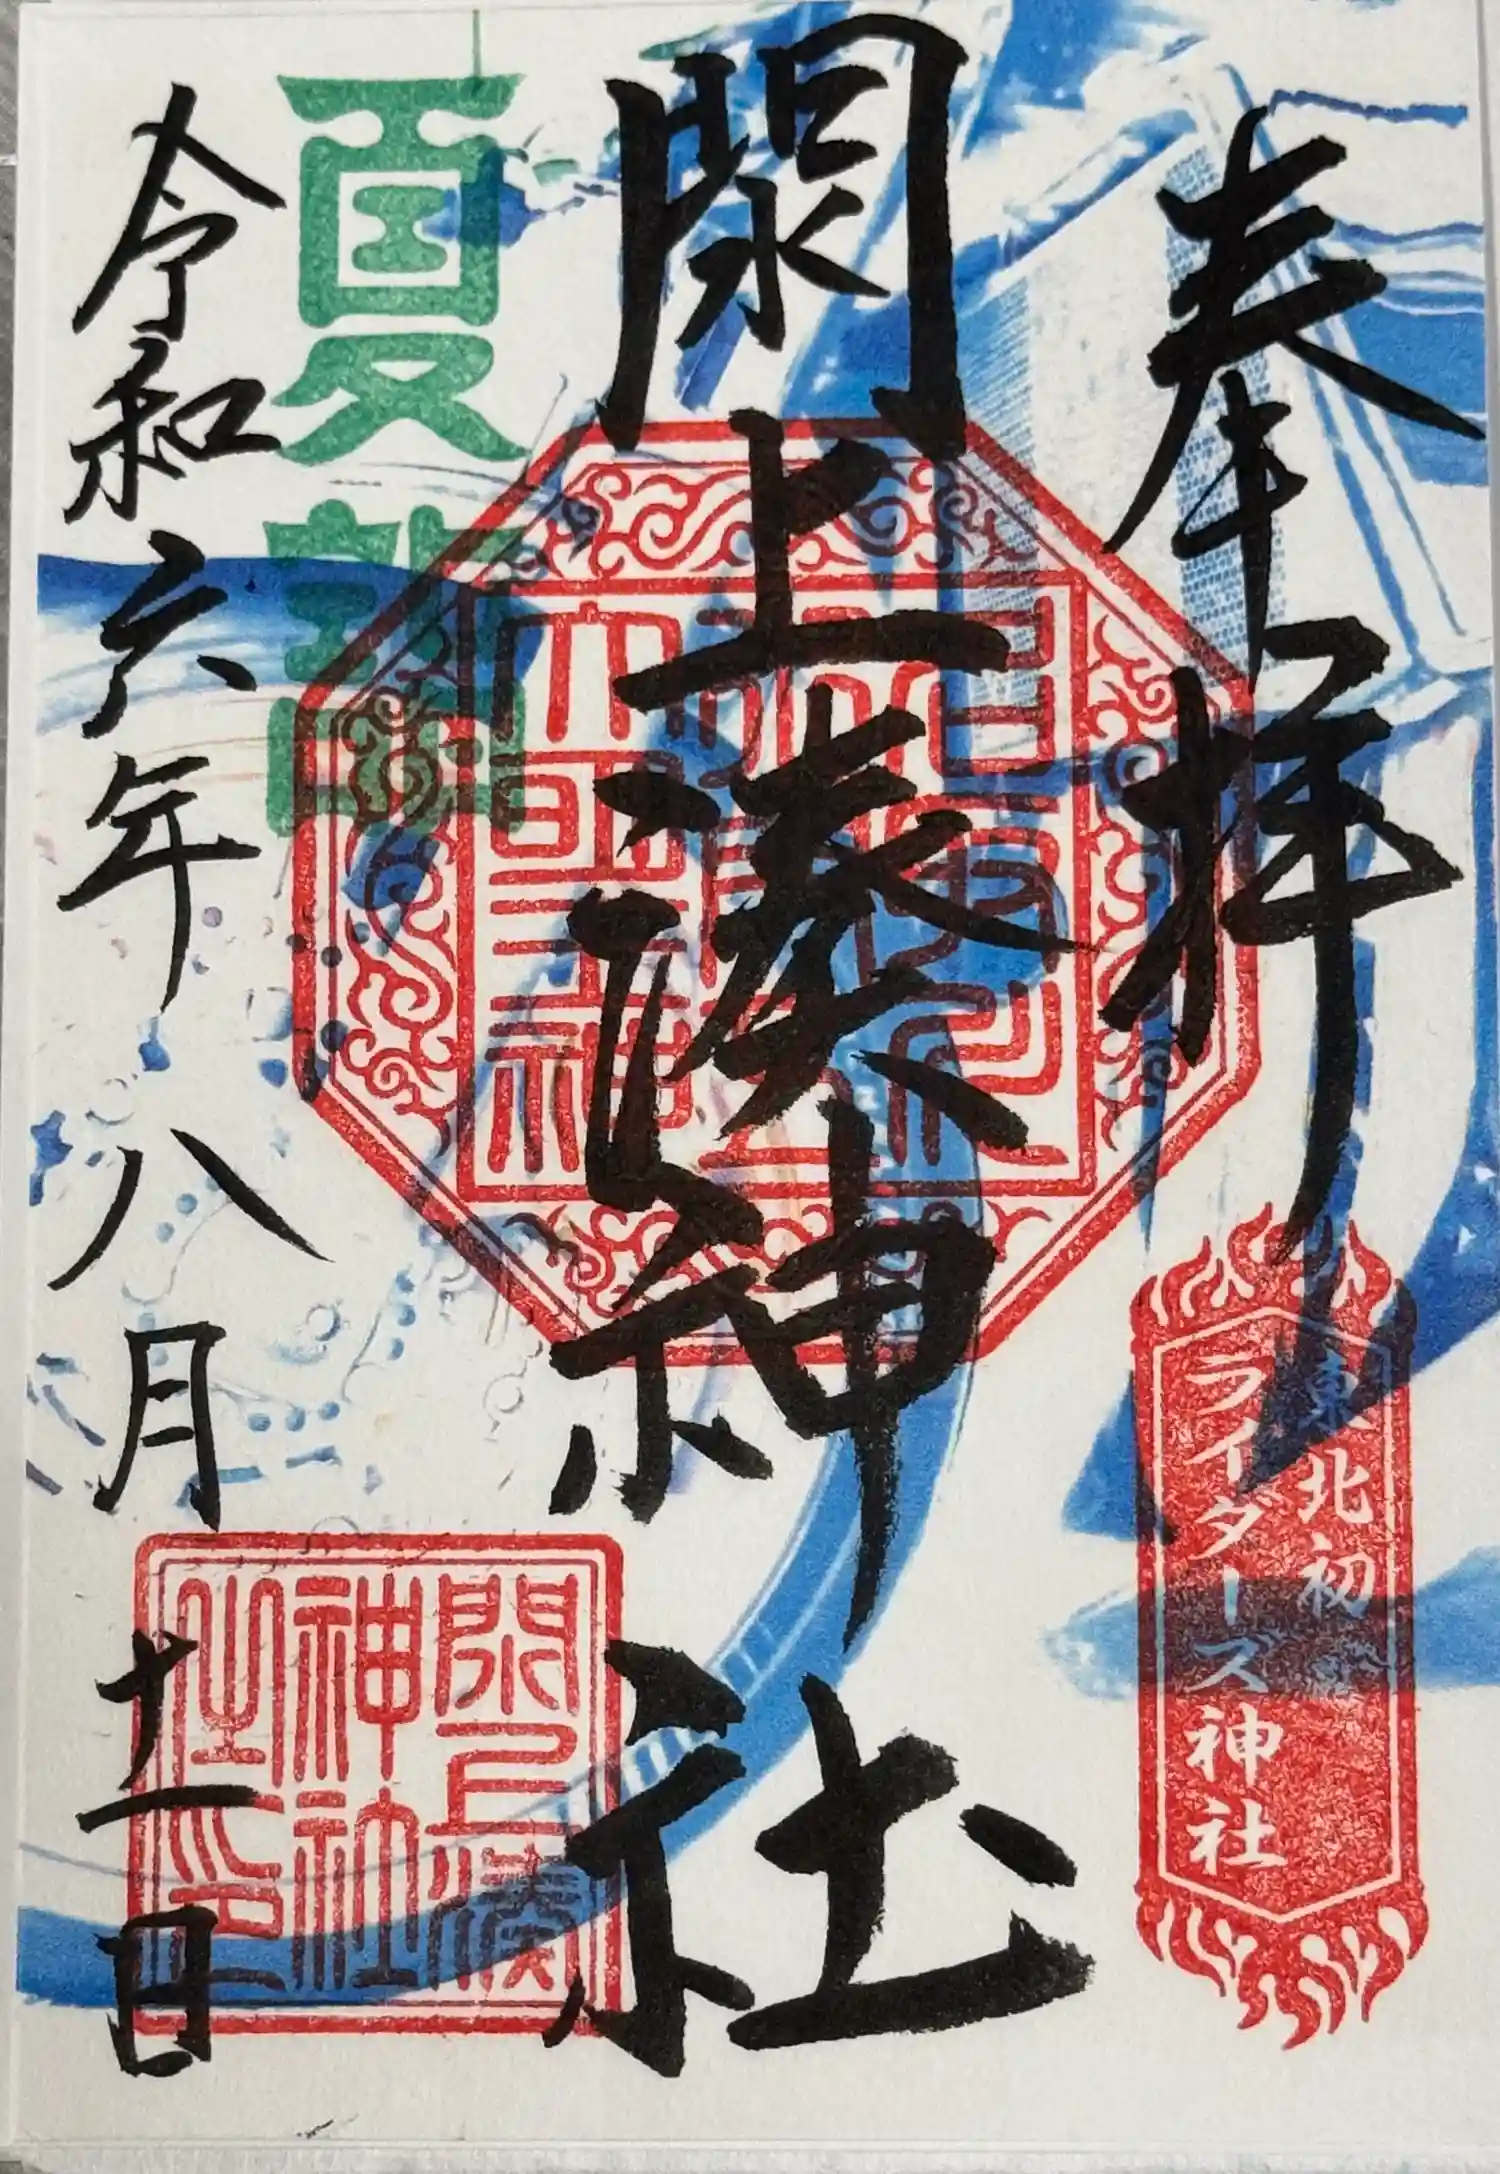 奉拝
東北初
ライダーズ神社
閖上湊神社
夏詣
閖上湊
神社
之印
令和六年八月十一日